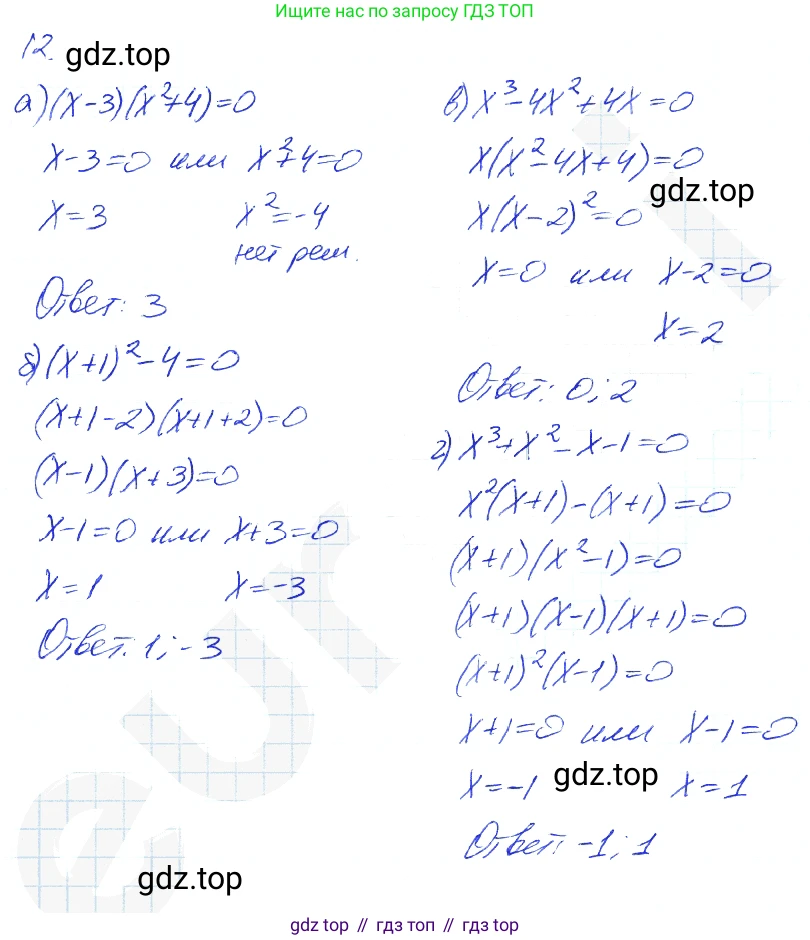 Ищите нас по запросу ГДЗ ТОП
12.
gdz.top
а) (x-3)(x²+4)=0
x-3=0 или x²+4=0
x=3 x²=-4
нет реш.
Ответ: 3
б) (x+1)²-4=0
(x+1-2)(x+1+2)=0
(x-1)(x+3)=0
x-1=0 или x+3=0
x=1 x=-3
Ответ: 1; -3
в) x³-4x²+4x=0
x(x²-4x+4)=0
gdz.top
x(x-2)²=0
x=0 или x-2=0
x=2
Ответ: 0; 2
г) x³+x²-x-1=0
x²(x+1)-(x+1)=0
(x+1)(x²-1)=0
(x+1)(x-1)(x+1)=0
(x+1)²(x-1)=0
x+1=0 или x-1=0
x=-1 x=1
gdz.top
Ответ: -1; 1
gdz.top
gdz top // гдз топ // gdz top // гдз топ
eur